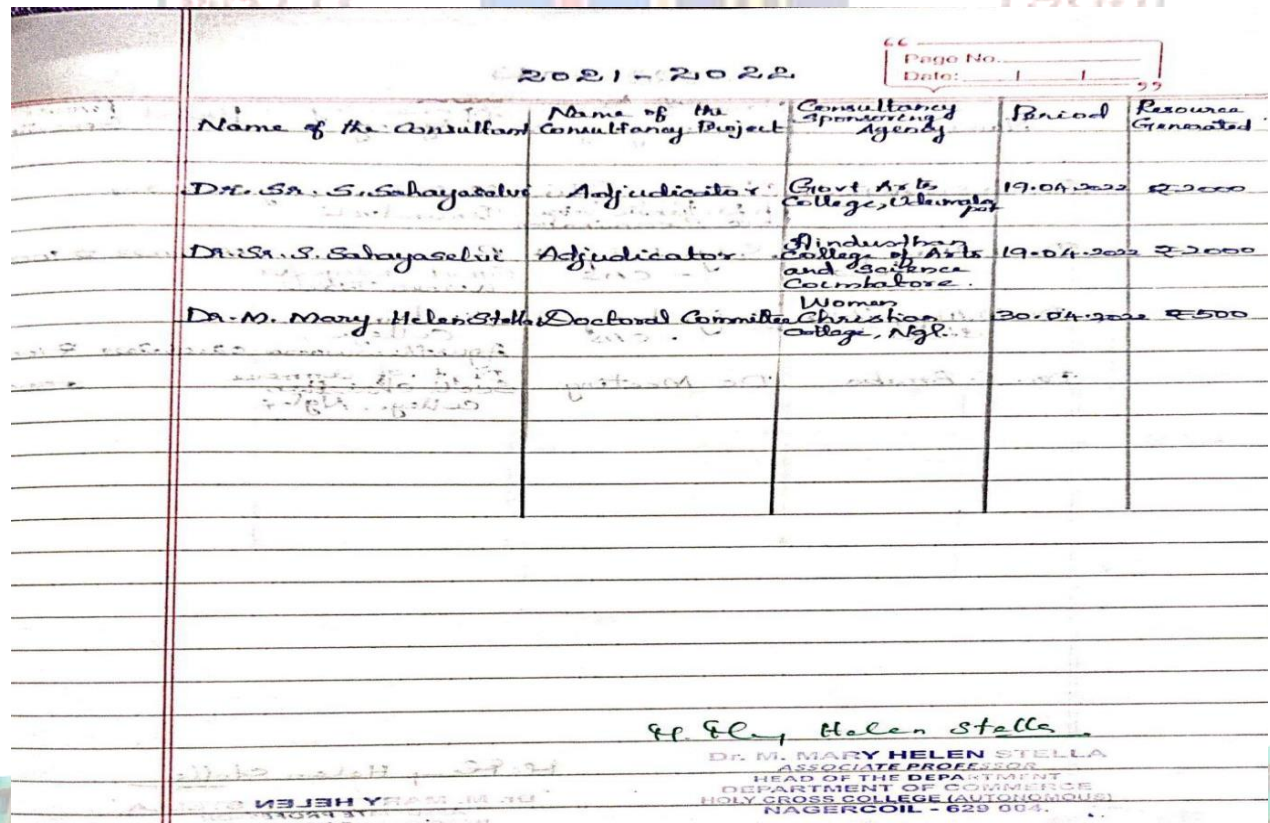 Page No.
Date:
2021-2022
Name of the Consultant
Name of the
Consultancy Project
Consultancy
Sponsoring
Agency
Period
Resource
Generated
Dr. Sr. S. Sahayaselvi
Adjudicator
Govt Arts
College,
19.04.2022
₹2000
Dr. Sr. S. Sahayaselvi
Adjudicator
Hindusthan
College of Arts
and Science
Coimbatore.
19.04.2022
₹2000
Dr. M. Mary Helen Stella
Doctoral Committee
Women
Christian
College, Ngl.
30.04.2022
₹500
Helen Stella
Dr. M. MARY HELEN STELLA
ASSOCIATE PROFESSOR
HEAD OF THE DEPARTMENT
DEPARTMENT OF COMMERCE
HOLY CROSS COLLEGE (AUTONOMOUS)
NAGERCOIL - 629 004.